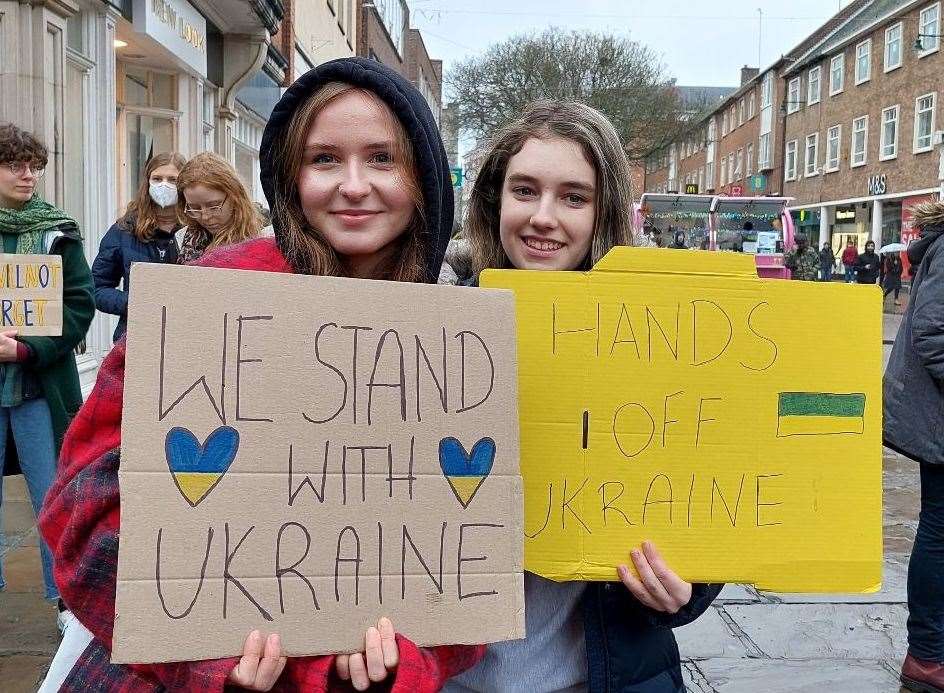 NEW LOOK
M&S
WILL NOT
RGET
WE STAND
WITH
UKRAINE
HANDS
OFF
UKRAINE